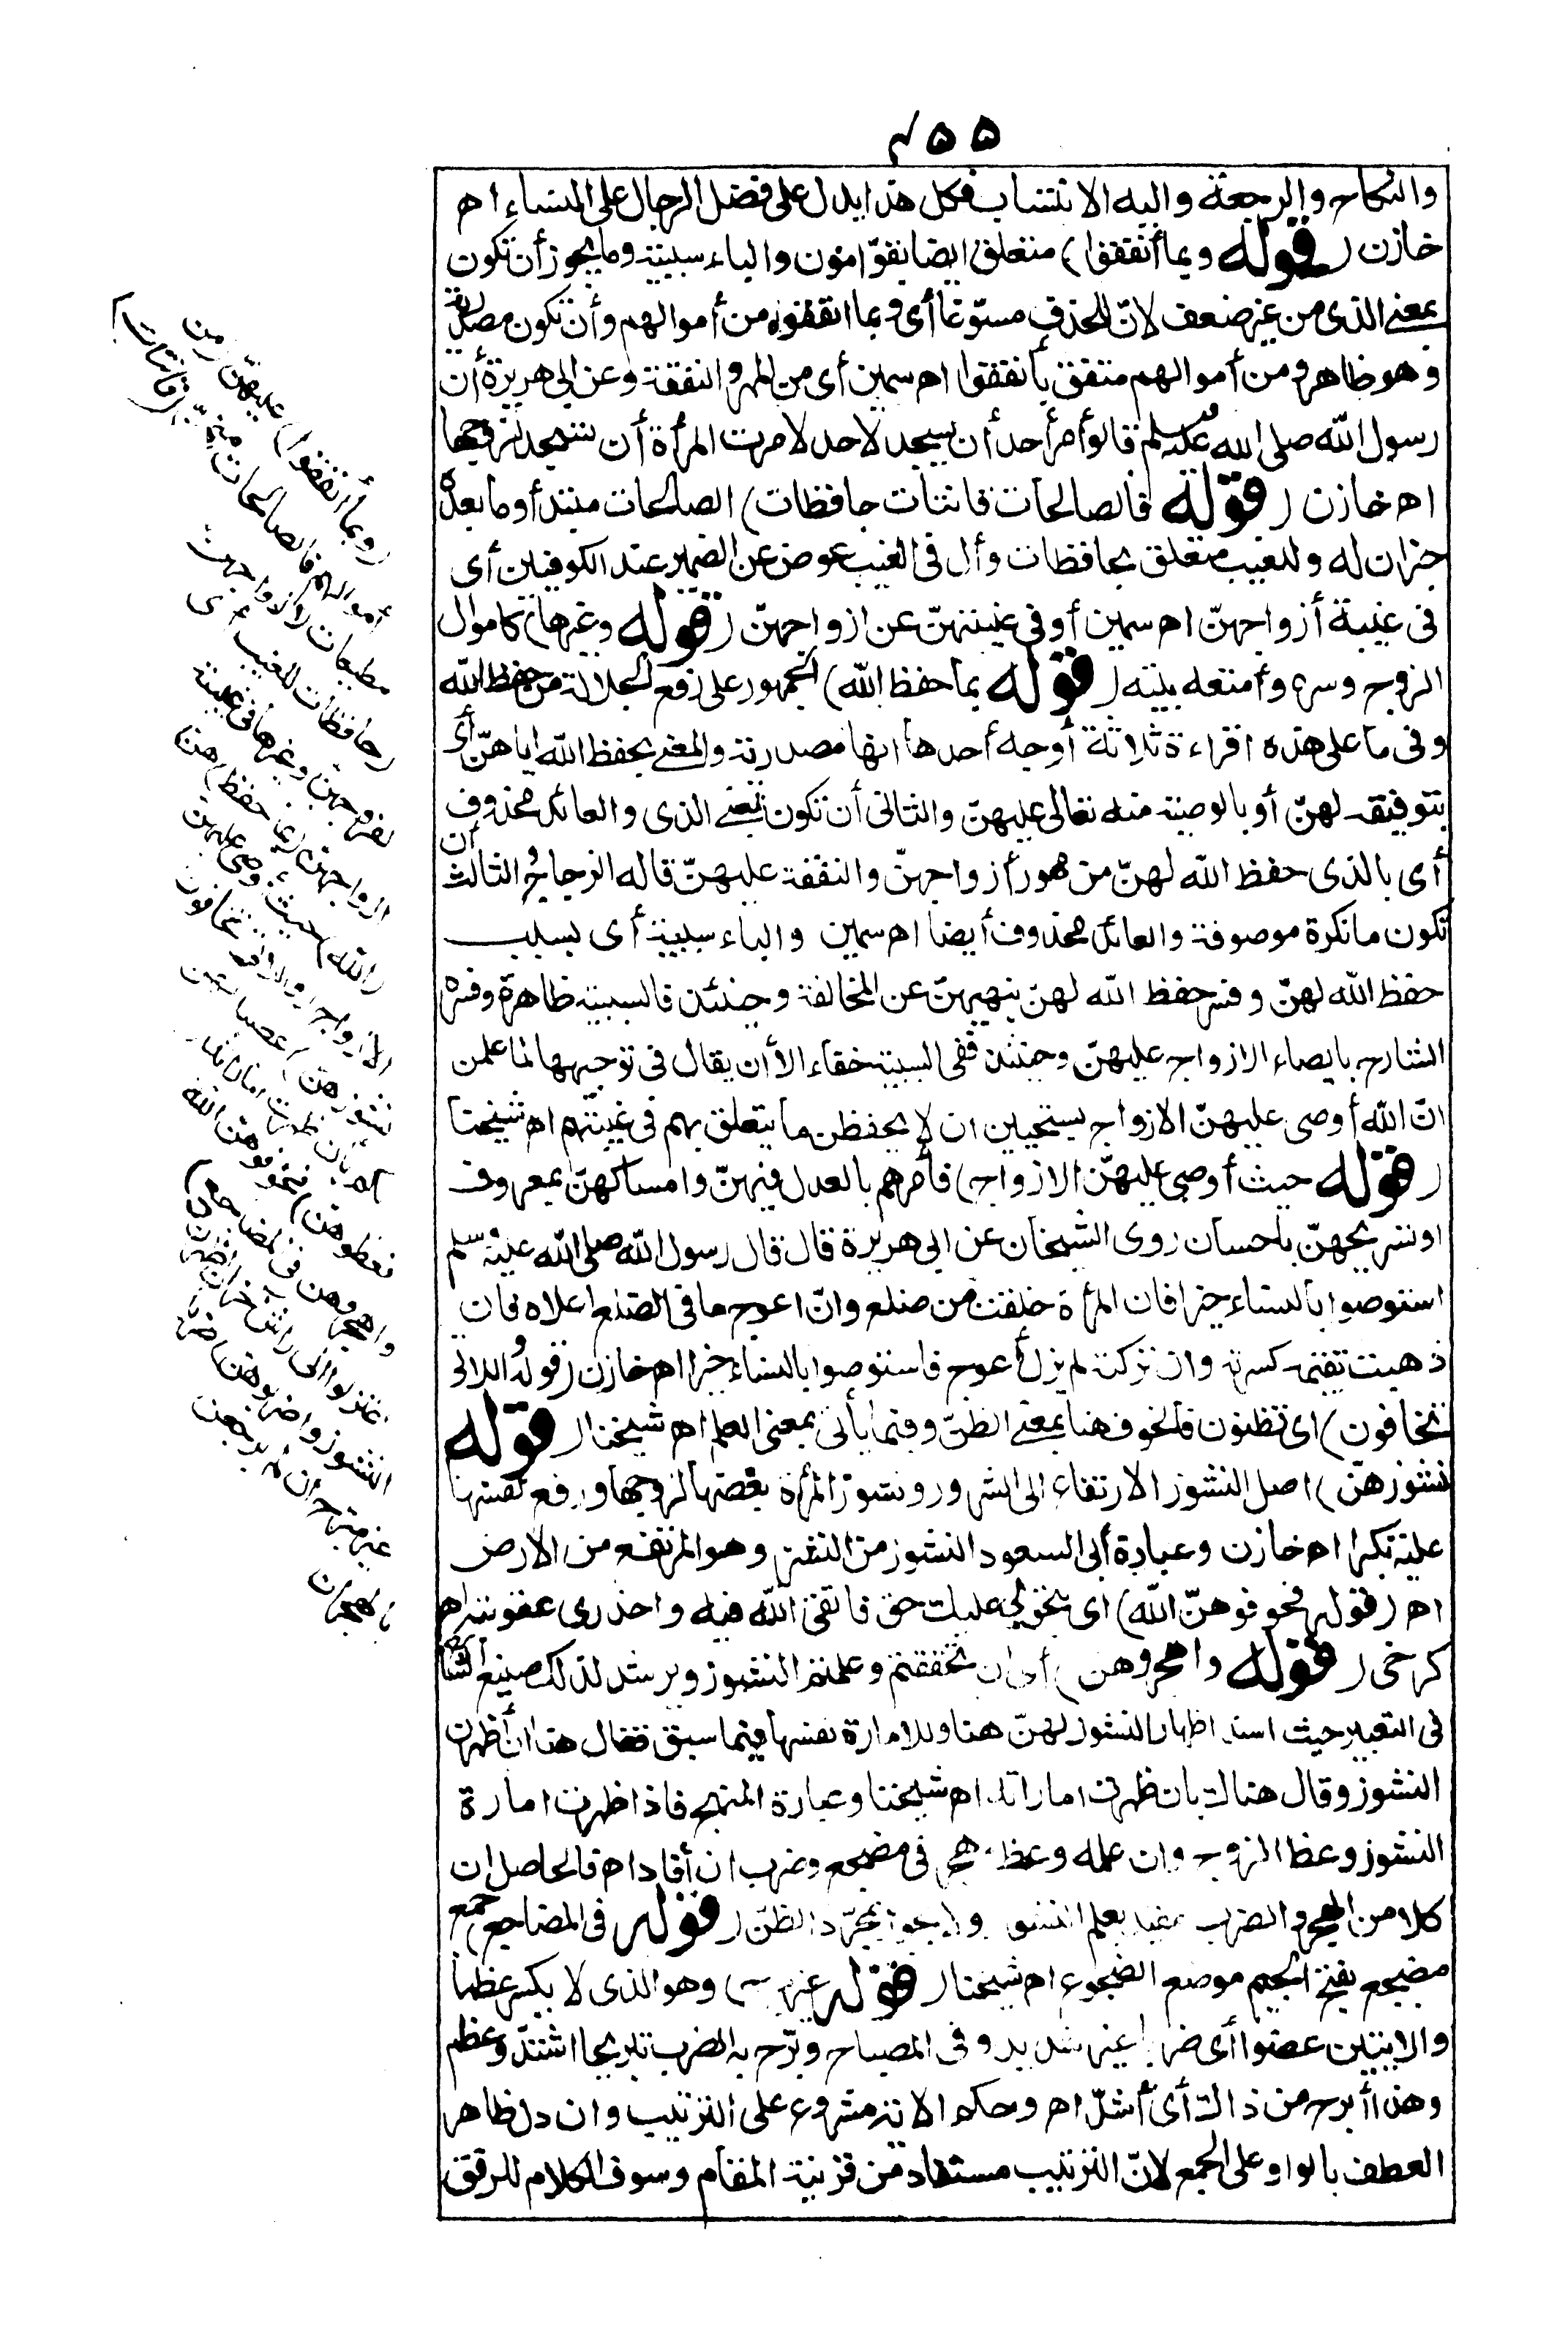 ٤٥٥
والنكاح والرجعة واليه الانتساب فكل هذا يدل على فضل الرجال على النساء اه
خازن (قوله وبما أنفقوا) متعلق ايضا بقوّامون والباء سببية وما يجوز أن تكون
بمعنى الذى من غير ضعف لانّ للحذف مسوّغا أى وبما انفقوه من أموالهم وأن تكون مصدرية
وهو ظاهر ومن أموالهم متعلق بأنفقوا اه سمين أى من المهر والنفقة وعن ابى هريرة أن
رسول الله صلى الله عليه وسلم قال لو أمر أحد أن يسجد لاحد لامرت المرأة أن تسجد لزوجها
اه خازن (قوله فالصالحات قانتات حافظات) الصالحات مبتدأ وما بعده
خبران له وللغيب متعلق بحافظات وأل فى الغيب عوض عن الضمير عند الكوفيين أى
فى غيبة أزواجهنّ اه سمين أو فى غيبتهنّ عن ازواجهنّ (قوله وغيرها) كاموال
الزوج وسره وأمتعة بيته (قوله بما حفظ الله) الجمهور على رفع الجلالة من حفظ الله
وفى ما على هذه القراءة ثلاثة أوجه أحدها انها مصدرية والمعنى بحفظ الله اياهنّ أى
بتوفيقه لهنّ أو بالوصية منه تعالى عليهنّ والثانى أن تكون بمعنى الذى والعائد محذوف
أى بالذى حفظ الله لهنّ من مهور أزواجهنّ والنفقة عليهنّ قاله الزجاج والثالث أن
تكون ما نكرة موصوفة والعائد محذوف أيضا اه سمين والباء سببية أى بسبب
حفظ الله لهنّ وفسر حفظ الله لهنّ بنهيهنّ عن المخالفة وحينئذ فالسببية ظاهرة وفسره
الشارح بايصاء الازواج عليهنّ وحينئذ ففى السببية خفاء الا أن يقال فى توجيهها لما علمن
انّ الله أوصى عليهنّ الازواج يستحيين ان لا يحفظن ما يتعلق بهم فى غيبتهم اه شيخنا
(قوله حيث أوصى عليهنّ الازواج) فأمرهم بالعدل فيهنّ وامساكهنّ بمعروف
او تسريحهنّ باحسان روى الشيخان عن ابى هريرة قال قال رسول الله صلى الله عليه وسلم
استوصوا بالنساء خيرا فان المرأة خلقت من ضلع وانّ اعوج ما فى الضلع اعلاه فان
ذهبت تقيمه كسرته وان تركته لم يزل أعوج فاستوصوا بالنساء خيرا اه خازن (قوله واللاتى
تخافون) اى تظنون فالخوف هنا بمعنى الظنّ وفيما يأتى بمعنى العلم اه شيخنا (قوله
نشوزهنّ) اصل النشوز الارتفاع الى الشرور ونشوز المرأة بغضها لزوجها ورفع نفسها
عليه تكبرا اه خازن وعبارة أبى السعود النشوز من النشز وهو المرتفع من الارض
اه (قوله فخوفوهنّ الله) اى بنحو لى عليك حق فاتقى الله فيه واحذرى عقوبته اه
كرخى (قوله واهجروهن) أى ان تحققتم وعلمتم النشوز ويرشد لذلك صنيع الشارح
فى التعبير حيث اسند اظهار النشوز لهنّ هنا وللامارة نفسها فيما سبق فقال هنا ان أظهرن
النشوز وقال هناك بان ظهرت اماراته اه شيخنا وعبارة المنهج فاذا ظهرت امارة
النشوز وعظ الزوج وان علمه وعظ هجر فى مضجع وضرب ان أفاد اه فالحاصل ان
كلا من الهجر والضرب مقيد بعلم النشوز ولا يجوز بمجرّد الظنّ (قوله فى المضاجع) جمع
مضجع بفتح الجيم موضع الضجوع اه شيخنا (قوله غير) وهو الذى لا يكسر عظما
ولا يشين عضوا أى ضربا غير شديد وفى المصباح وبرّح به الضرب تبريحا اشتدّ وعظم
وهذا أبرح من ذاك أى أشدّ اه وحكم الاية مشروع على الترتيب وان دل ظاهر
العطف بالواو على الجمع لانّ الترتيب مستفاد من قرينة المقام وسوق الكلام للرفق
(وبما أنفقوا) عليهنّ (من
أموالهم فالصالحات) منهنّ (قانتات)
مطيعات لأزواجهن
(حافظات للغيب) أى
لفروجهن وغيرها فى غيبة
ازواجهن (بما حفظ) هن
(الله) حيث أوصى عليهن
الأزواج (واللاتى تخافون
نشوزهن) عصيانهن
لكم بأن ظهرت اماراته
(فعظوهن) فخوفوهن الله
(واهجروهن فى المضاجع)
اعتزلوا الى فراش آخر ان أظهرن
النشوز (واضربوهن) ضربا
غير مبرح ان لم يرجعن
بالهجران